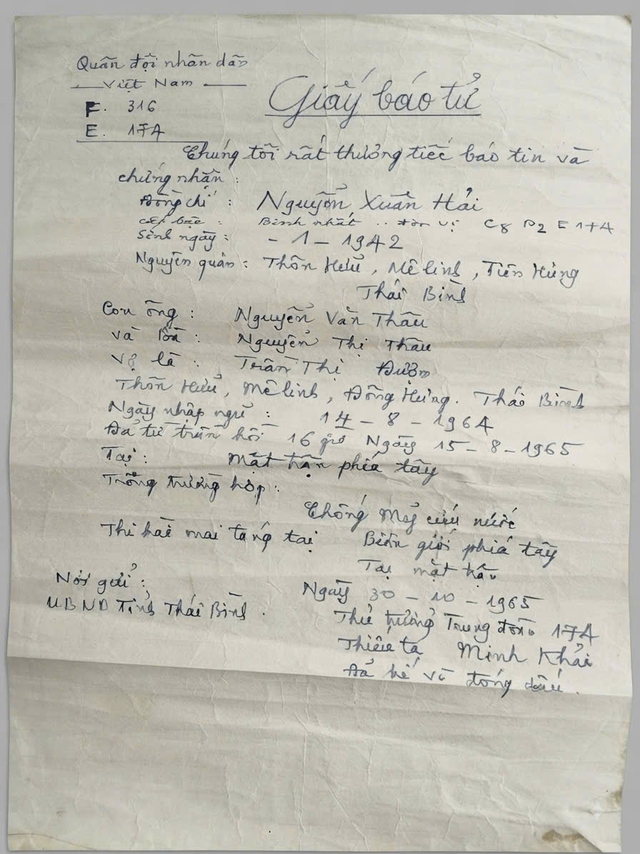 Quân đội nhân dân
Việt Nam
F. 316
E. 174
Giấy báo tử
Chúng tôi rất thương tiếc báo tin và
chứng nhận:
Đồng chí: Nguyễn Xuân Hải
cấp bậc: Binh nhất .. đơn vị C8 D2 E174
Sinh ngày: - 1 - 1942
Nguyên quán: Thôn Hữu, Mê linh, Tiên Hưng
Thái Bình
Con ông: Nguyễn Văn Thâu
và Bà: Nguyễn Thị Thâu
Vợ là: Trần Thị Đượm
Thôn Hữu, Mê linh, Đông Hưng. Thái Bình
Ngày nhập ngũ: 14 - 8 - 1964
Đã từ trần hồi 16 giờ Ngày 15 - 8 - 1965
Tại: Mặt trận phía tây
Trong trường hợp:
Chống Mỹ cứu nước
Thi hài mai táng tại Biên giới phía tây
Tại mặt trận
Nơi gửi:
UBND Tỉnh Thái Bình.
Ngày 30 - 10 - 1965
Thủ trưởng Trung đoàn 174
Thiếu tá Minh Khải
Đã ký và đóng dấu.